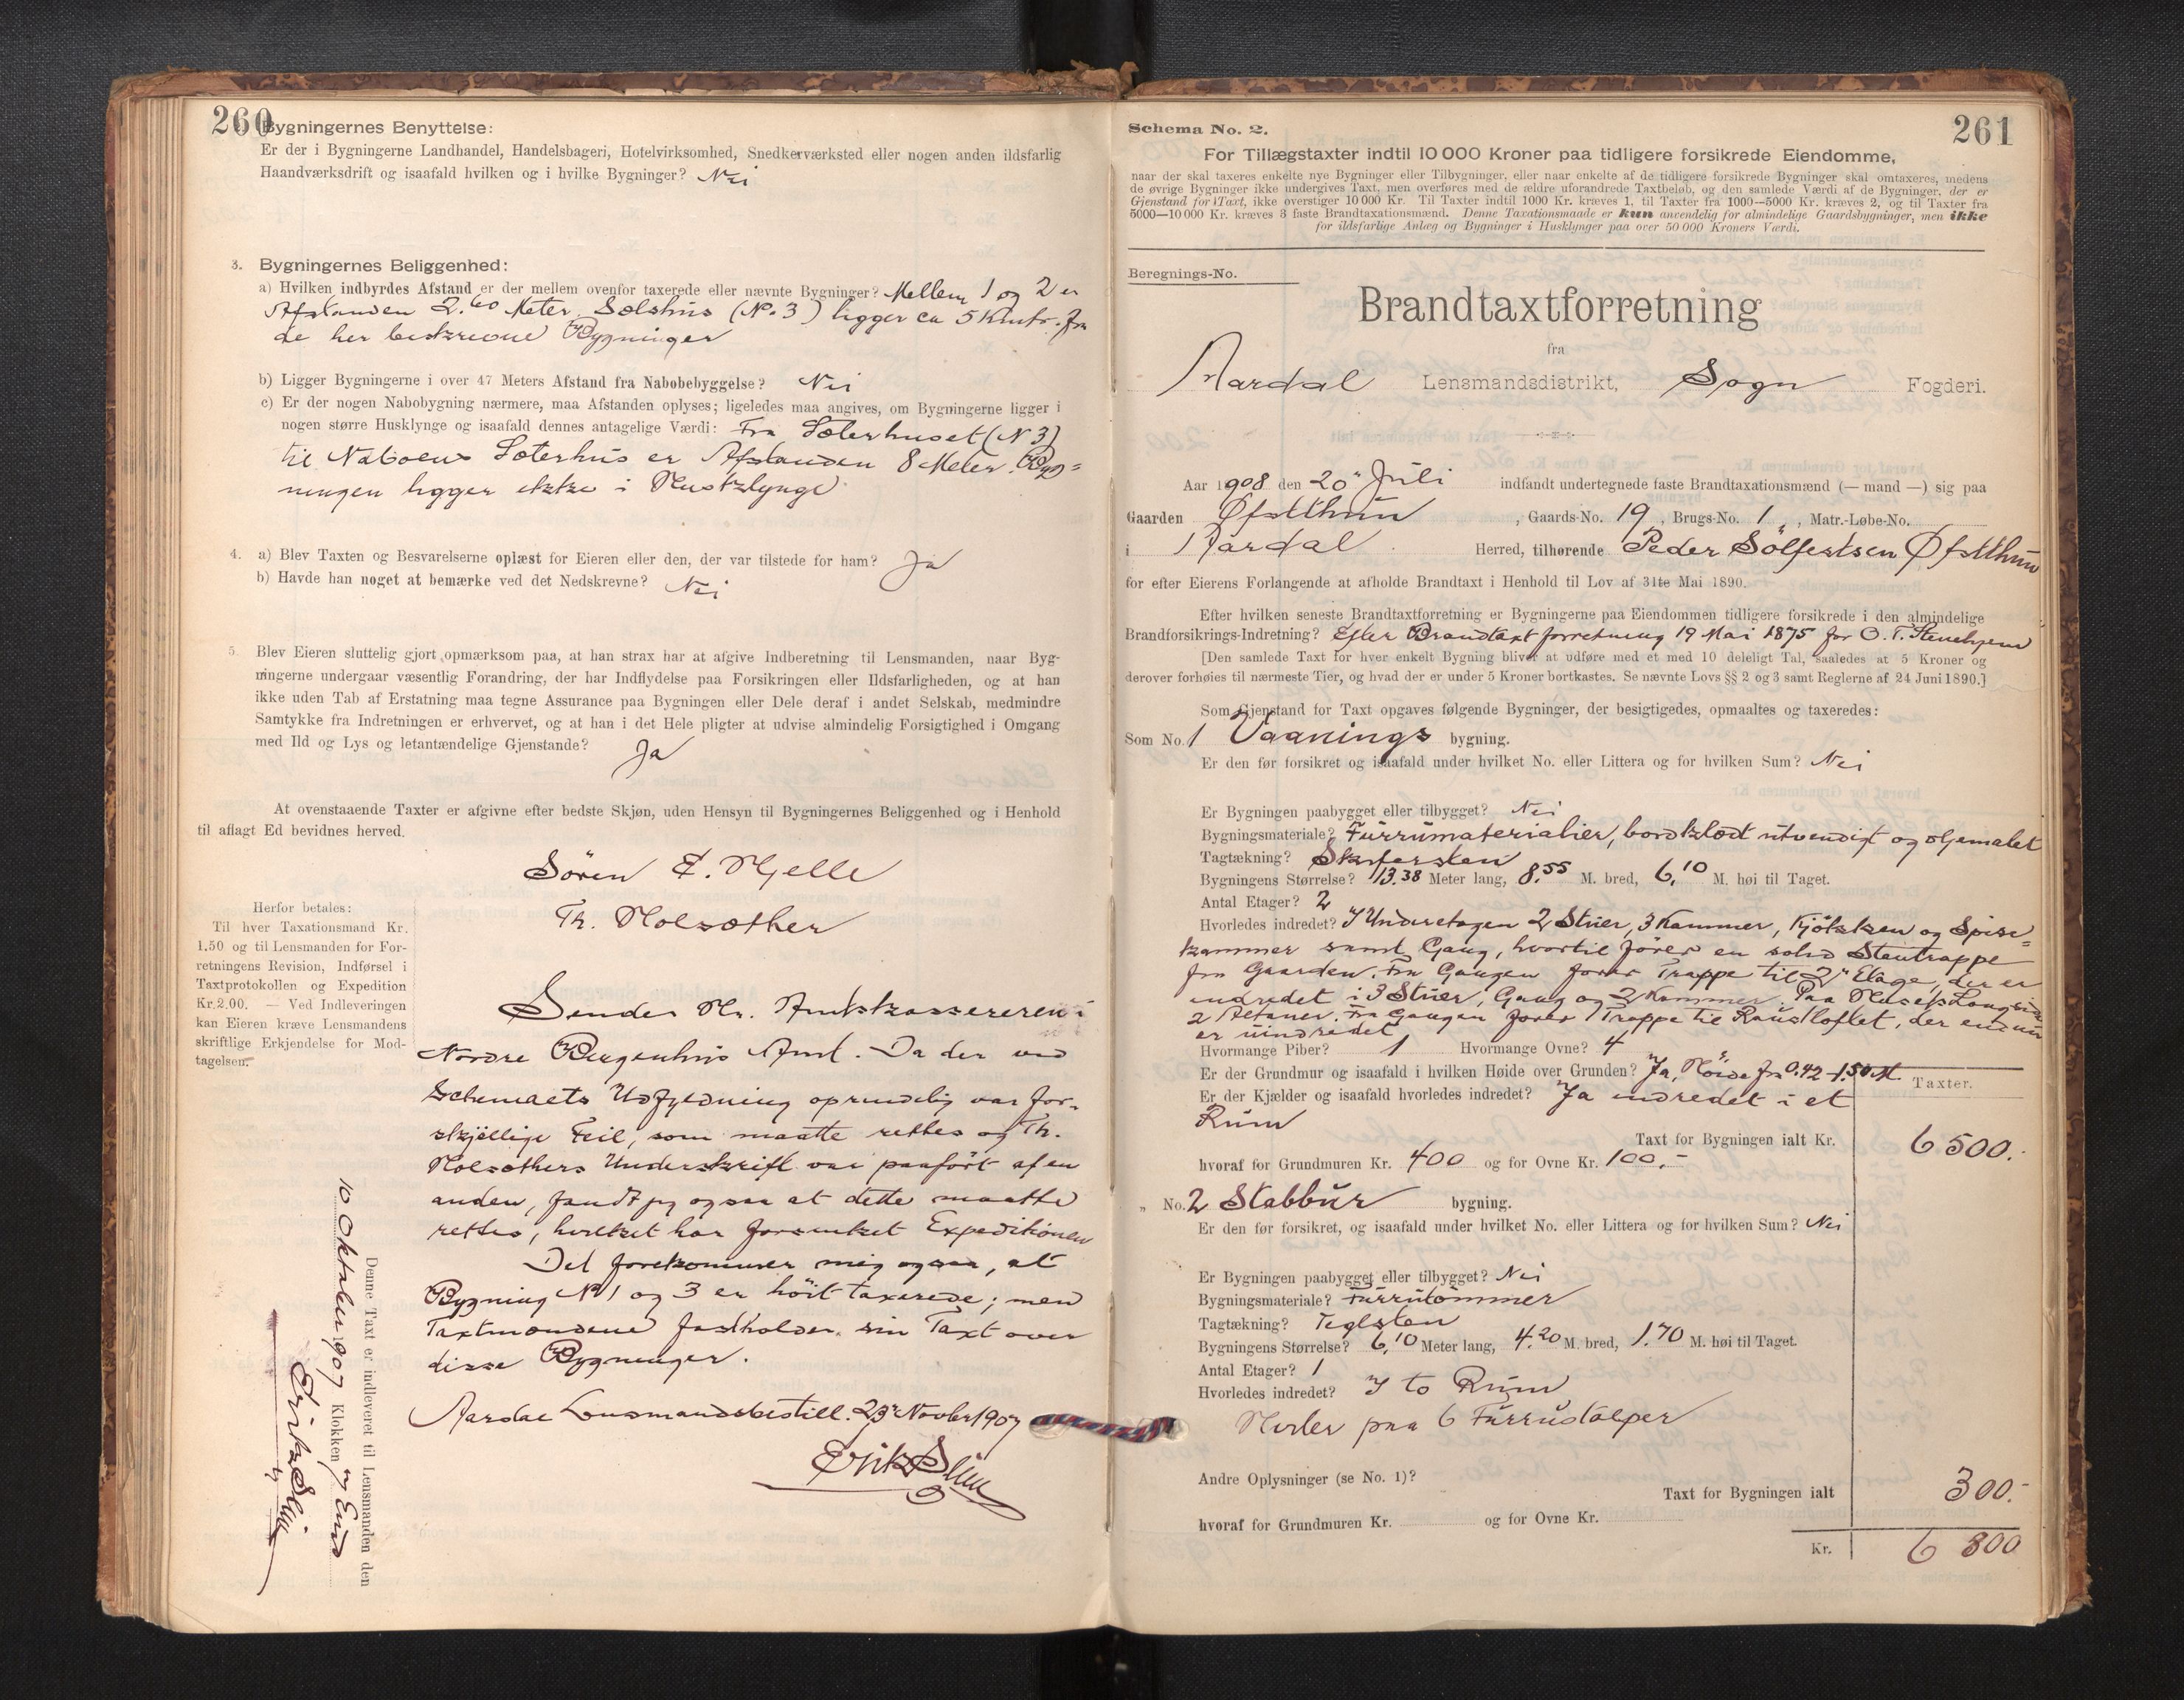 260
Bygningernes Benyttelse:
Er der i Bygningerne Landhandel, Handelsbageri, Hotelvirksomhed, Snedkerværksted eller nogen anden ildsfarlig
Haandværksdrift og isaafald hvilken og i hvilke Bygninger? Nei
3. Bygningernes Beliggenhed:
a) Hvilken indbyrdes Afstand er der mellem ovenfor taxerede eller nævnte Bygninger? Mellem 1 og 2 er
Afstanden 2.60 Meter. Sælshus (No 3) ligger ca 5 Kmtr. fra
de her beskrevne Bygninger
b) Ligger Bygningerne i over 47 Meters Afstand fra Nabobebyggelse? Nei
c) Er der nogen Nabobygning nærmere, maa Afstanden oplyses; ligeledes maa angives, om Bygningerne ligger i
nogen større Husklynge og isaafald dennes antagelige Værdi: Fra Sæterhuset (N 3)
til Naboens Sæterhus er Afstanden 8 Meter. Byg=
ningen ligger ikke i Husklynge
4. a) Blev Taxten og Besvarelserne oplæst for Eieren eller den, der var tilstede for ham? Ja
b) Havde han noget at bemærke ved det Nedskrevne? Nei
5. Blev Eieren sluttelig gjort opmærksom paa, at han strax har at afgive Indberetning til Lensmanden, naar Byg-
ningerne undergaar væsentlig Forandring, der har Indflydelse paa Forsikringen eller Ildsfarligheden, og at han
ikke uden Tab af Erstatning maa tegne Assurance paa Bygningen eller Dele deraf i andet Selskab, medmindre
Samtykke fra Indretningen er erhvervet, og at han i det Hele pligter at udvise almindelig Forsigtighed i Omgang
med Ild og Lys og letantændelige Gjenstande? Ja
At ovenstaaende Taxter er afgivne efter bedste Skjøn, uden Hensyn til Bygningernes Beliggenhed og i Henhold
til aflagt Ed bevidnes herved.
Sören E. Hjelle
Th. Holsæther
Herfor betales:
Til hver Taxationsmand Kr.
1,50 og til Lensmanden for For-
retningens Revision, Indførsel i
Taxtprotokollen og Expedition
Kr. 2.00. — Ved Indleveringen
kan Eieren kræve Lensmandens
skriftlige Erkjendelse for Mod-
tagelsen.
Sendes Hr. Amtskassereren i
Nordre Bergenhus Amt. Da der ved
Schemaets Udfyldning oprindelig var for-
skjellige Feil, som maatte rettes og Th.
Holsæthers Underskrift var paafört af en
anden, fandt jeg ogsaa at dette maatte
rettes, hvilket har forsinket Expeditionen
Det forekommer mig ogsaa, at
Bygning No 1 og 3 er höit taxerede; men
Taxtmændene fastholder sin Taxt over
disse Bygninger.
Aardal Lensmandsbestill. 23 Novbr 1907
Denne Taxt er indleveret til Lensmanden den
10 Oktober 1907 Klokken 7 Em
261
Schema No. 2.
For Tillægstaxter indtil 10 000 Kroner paa tidligere forsikrede Eiendomme,
naar der skal taxeres enkelte nye Bygninger eller Tilbygninger, eller naar enkelte af de tidligere forsikrede Bygninger skal omtaxeres, medens
de øvrige Bygninger ikke undergives Taxt, men overføres med de ældre uforandrede Taxtbeløb, og den samlede Værdi af de Bygninger, der er
Gjenstand for Taxt, ikke overstiger 10 000 Kr. Til Taxter indtil 1000 Kr. kræves 1, til Taxter fra 1000—5000 Kr. kræves 2, og til Taxter fra
5000—10 000 Kr. kræves 3 faste Brandtaxationsmænd. Denne Taxationsmaade er kun anvendelig for almindelige Gaardsbygninger, men ikke
for ildsfarlige Anlæg og Bygninger i Husklynger paa over 50 000 Kroners Værdi.
Beregnings-No.
Brandtaxtforretning
fra
Aardal Lensmandsdistrikt, Sogn Fogderi.
Aar 1908 den 20 Juli indfandt undertegnede faste Brandtaxationsmænd (— mand —) sig paa
Gaarden Øfstthun, Gaards-No. 19, Brugs-No. 1, Matr.-Løbe-No.
i Aardal Herred, tilhørende Peder Sölfestsen Øfstthun
for efter Eierens Forlangende at afholde Brandtaxt i Henhold til Lov af 31te Mai 1890.
Efter hvilken seneste Brandtaxtforretning er Bygningerne paa Eiendommen tidligere forsikrede i den almindelige
Brandforsikrings-Indretning? Efter Brandtaxtforretning 19 Mai 1875 for O. T. Stenehjem
[Den samlede Taxt for hver enkelt Bygning bliver at udføre med et med 10 deleligt Tal, saaledes at 5 Kroner og
derover forhøies til nærmeste Tier, og hvad der er under 5 Kroner bortkastes. Se nævnte Lovs §§ 2 og 3 samt Reglerne af 24 Juni 1890.]
Som Gjenstand for Taxt opgaves følgende Bygninger, der besigtigedes, opmaaltes og taxeredes:
Som No. 1 Vaanings bygning.
Er den før forsikret og isaafald under hvilket No. eller Littera og for hvilken Sum? Nei
Er Bygningen paabygget eller tilbygget? Nei
Bygningsmateriale? Furrumaterialier, bordklædt utvendigt og oljemalet
Tagtækning? Skifersten
Bygningens Størrelse? 13.38 Meter lang, 8.55 M. bred, 6,10 M. høi til Taget.
Antal Etager? 2
Hvorledes indredet? I Underetagen 2 Stuer, 3 Kammer, Kjökken og Spise=
kammer samt Gang, hvortil förer en solid Stentrappe
fra Gaarden. Fra Gangen förer Trappe til 2 Etage, der er
indredet i 3 Stuer, Gang og 2 Kammer. Paa Husets Langside
2 Altaner. Fra Gangen förer Trappe til Rausloftet, der endnu
er uindredet
Hvormange Piber? 1 Hvormange Ovne? 4
Er der Grundmur og isaafald i hvilken Høide over Grunden? Ja, Höide fra 0.42 - 1.50 M.
Taxter.
Er der Kjælder og isaafald hvorledes indredet? Ja indredet i et
Rum
Taxt for Bygningen ialt Kr. 6 500.-
hvoraf for Grundmuren Kr. 400 og for Ovne Kr. 100.-
" No. 2 Stabbur bygning.
Er den før forsikret, og isaafald under hvilket No. eller Littera og for hvilken Sum? Nei
Er Bygningen paabygget eller tilbygget? Nei
Bygningsmateriale? Furrutömmer
Tagtækning? Teglsten
Bygningens Størrelse? 6,10 Meter lang, 4.20 M. bred, 1.70 M. høi til Taget.
Antal Etager? 1
Hvorledes indredet? I to Rum
Hviler paa 6 Furrustolper
Andre Oplysninger (se No. 1)?
Taxt for Bygningen ialt 300.-
hvoraf for Grundmuren Kr. og for Ovne Kr.
Kr. 6 800